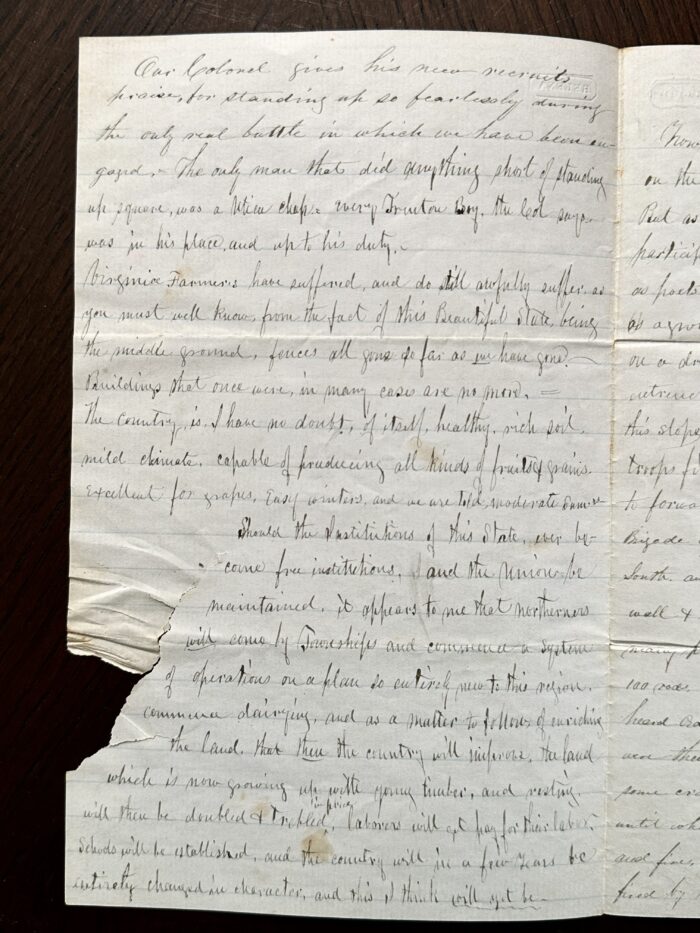 Our Colonel gives his new recruits
praise, for standing up so fearlessly during
the only real battle in which we have been en-
gagd. The only man that did anything short of standing
up square, was a Utica chap. every Trenton Boy, the Col says
was in his place, and up to his duty.
Virginia Farmers have suffered, and do still awfully suffer, as
you must well know, from the fact of this Beautiful State, being
the middle ground, fences all gone so far as we have gone.
Buildings that once were, in many cases are no more. =
The country, is, I have no doubt, of itself, healthy, rich soil,
mild climate, capable of producing all kinds of fruits & grains.
Excellent for grapes, Easy winters, and we are told, moderate
Should the Institutions of this State, ever be-
come free institutions, and the Union be
maintained, it appears to me that northerners
will come by Townships and commence a system
of operations on a plan so entirely new to this region.
commence dairying, and as a matter to follow, of enriching
the land, that then the country will improve, the land
which is now growing up with young timber, and resting,
will then be doubled & trebled in price, laborers will get pay for their labor,
Schools will be established, and the country will in a few years be
entirely changed in character, and this I think will yet be-
Now
on the
But as
particip
as poets
as a grou
on a dr
retrenc
this slope
troops fi
to forwa
Brigade
South an
well &
many
100 rods
heard
were the
some
until
and five
fired by